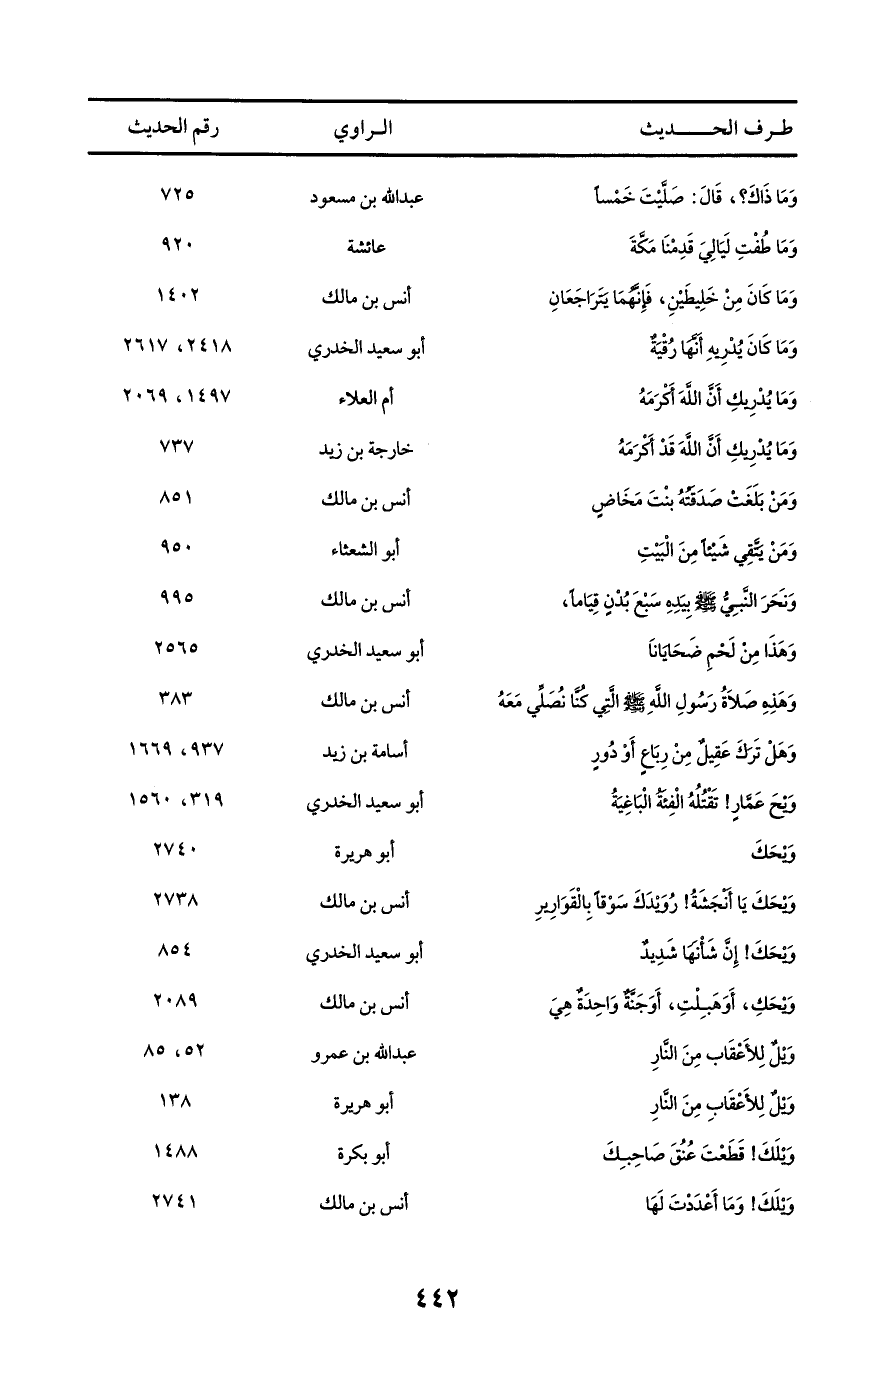 طرف الحديث الراوي رقم الحديث
وَمَا ذَاكَ؟، قَالَ: صَلَّيْتَ خَمْساً عبدالله بن مسعود ٧٢٥
وَمَا طُفْتِ لَيَالِيَ قَدِمْنَا مَكَّةَ عائشة ٩٢٠
وَمَا كَانَ مِنْ خَلِيطَيْنِ، فَإِنَّهُمَا يَتَرَاجَعَانِ أنس بن مالك ١٤٠٢
وَمَا كَانَ يُدْرِيهِ أَنَّهَا رُقْيَةٌ أبو سعيد الخدري ٢٤١٨، ٢٦١٧
وَمَا يُدْرِيكِ أَنَّ اللَّهَ أَكْرَمَهُ أم العلاء ١٤٩٧، ٢٠٦٩
وَمَا يُدْرِيكِ أَنَّ اللَّهَ قَدْ أَكْرَمَهُ خارجة بن زيد ٧٣٧
وَمَنْ بَلَغَتْ صَدَقَتُهُ بِنْتَ مَخَاضٍ أنس بن مالك ٨٥١
وَمَنْ يَتَّقِي شَيْئاً مِنَ الْبَيْتِ أبو الشعثاء ٩٥٠
وَنَحَرَ النَّبِيُّ ﷺ بِيَدِهِ سَبْعَ بُدْنٍ قِيَاماً، أنس بن مالك ٩٩٥
وَهَذَا مِنْ لَحْمِ ضَحَايَانَا أبو سعيد الخدري ٢٥٦٥
وَهَذِهِ صَلاَةُ رَسُولِ اللَّهِ ﷺ الَّتِي كُنَّا نُصَلِّي مَعَهُ أنس بن مالك ٣٨٣
وَهَلْ تَرَكَ عَقِيلٌ مِنْ رِبَاعٍ أَوْ دُورٍ أسامة بن زيد ٩٣٧، ١٦٦٩
وَيْحَ عَمَّارٍ! تَقْتُلُهُ الْفِئَةُ الْبَاغِيَةُ أبو سعيد الخدري ٣١٩، ١٥٦٠
وَيْحَكَ أبو هريرة ٢٧٤٠
وَيْحَكَ يَا أَنْجَشَةُ! رُوَيْدَكَ سَوْقاً بِالْقَوَارِيرِ أنس بن مالك ٢٧٣٨
وَيْحَكَ! إِنَّ شَأْنَهَا شَدِيدٌ أبو سعيد الخدري ٨٥٤
وَيْحَكِ، أَوَهَبِلْتِ، أَوَجَنَّةٌ وَاحِدَةٌ هِيَ أنس بن مالك ٢٠٨٩
وَيْلٌ لِلأَعْقَابِ مِنَ النَّارِ عبدالله بن عمرو ٥٢، ٨٥
وَيْلٌ لِلأَعْقَابِ مِنَ النَّارِ أبو هريرة ١٣٨
وَيْلَكَ! قَطَعْتَ عُنُقَ صَاحِبِكَ أبو بكرة ١٤٨٨
وَيْلَكَ! وَمَا أَعْدَدْتَ لَهَا أنس بن مالك ٢٧٤١
٤٤٢